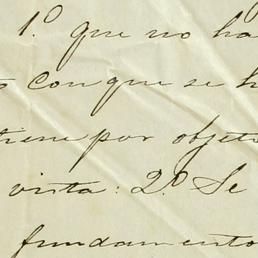 1.º que no ha
con que se h
tiene por objeto
vista: 2.º Se
fundamento